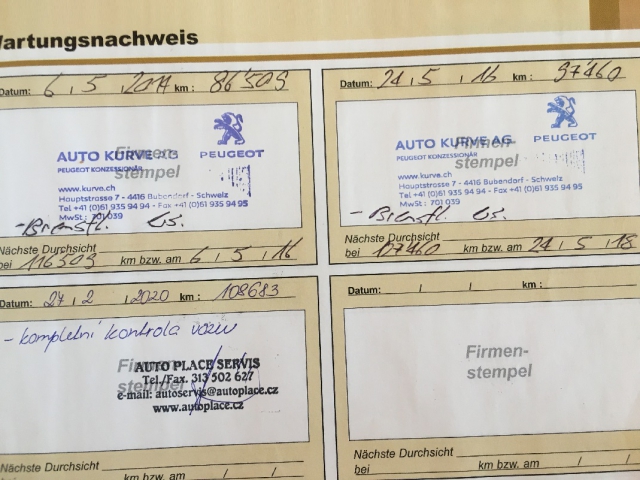 Wartungsnachweis
Datum: 6 . 5 . 2014 km : 86509
Firmen-
stempel
AUTO KURVE AG PEUGEOT
PEUGEOT KONZESSIONÄR
www.kurve.ch
Hauptstrasse 7 - 4416 Bubendorf - Schweiz
Tel +41 (0)61 935 94 94 - Fax +41 (0)61 935 94 95
MwSt : 701 039
Nächste Durchsicht
bei 116509 km bzw. am 6 . 5 . 16
Datum: 24 . 5 . 16 km : 97460
Firmen-
stempel
AUTO KURVE AG PEUGEOT
PEUGEOT KONZESSIONÄR
www.kurve.ch
Hauptstrasse 7 - 4416 Bubendorf - Schweiz
Tel +41 (0)61 935 94 94 - Fax +41 (0)61 935 94 95
MwSt : 701 039
Nächste Durchsicht
bei 107460 km bzw. am 24 . 5 . 18
Datum: 27 . 2 . 2020 km : 108683
- kompletní kontrola vozu
Firmen-
stempel
AUTO PLACE SERVIS
Tel./Fax. 313 502 627
e-mail: autoservis@autoplace.cz
www.autoplace.cz
Nächste Durchsicht
bei km bzw. am / /
Datum: / / km :
Firmen-
stempel
Nächste Durchsicht
bei km bzw. am / /